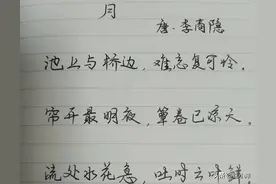 月
唐·李商隐
池上与桥边，难忘复可怜。
帘开最明夜，簟卷已凉天。
流处水花急，吐时云叶鲜